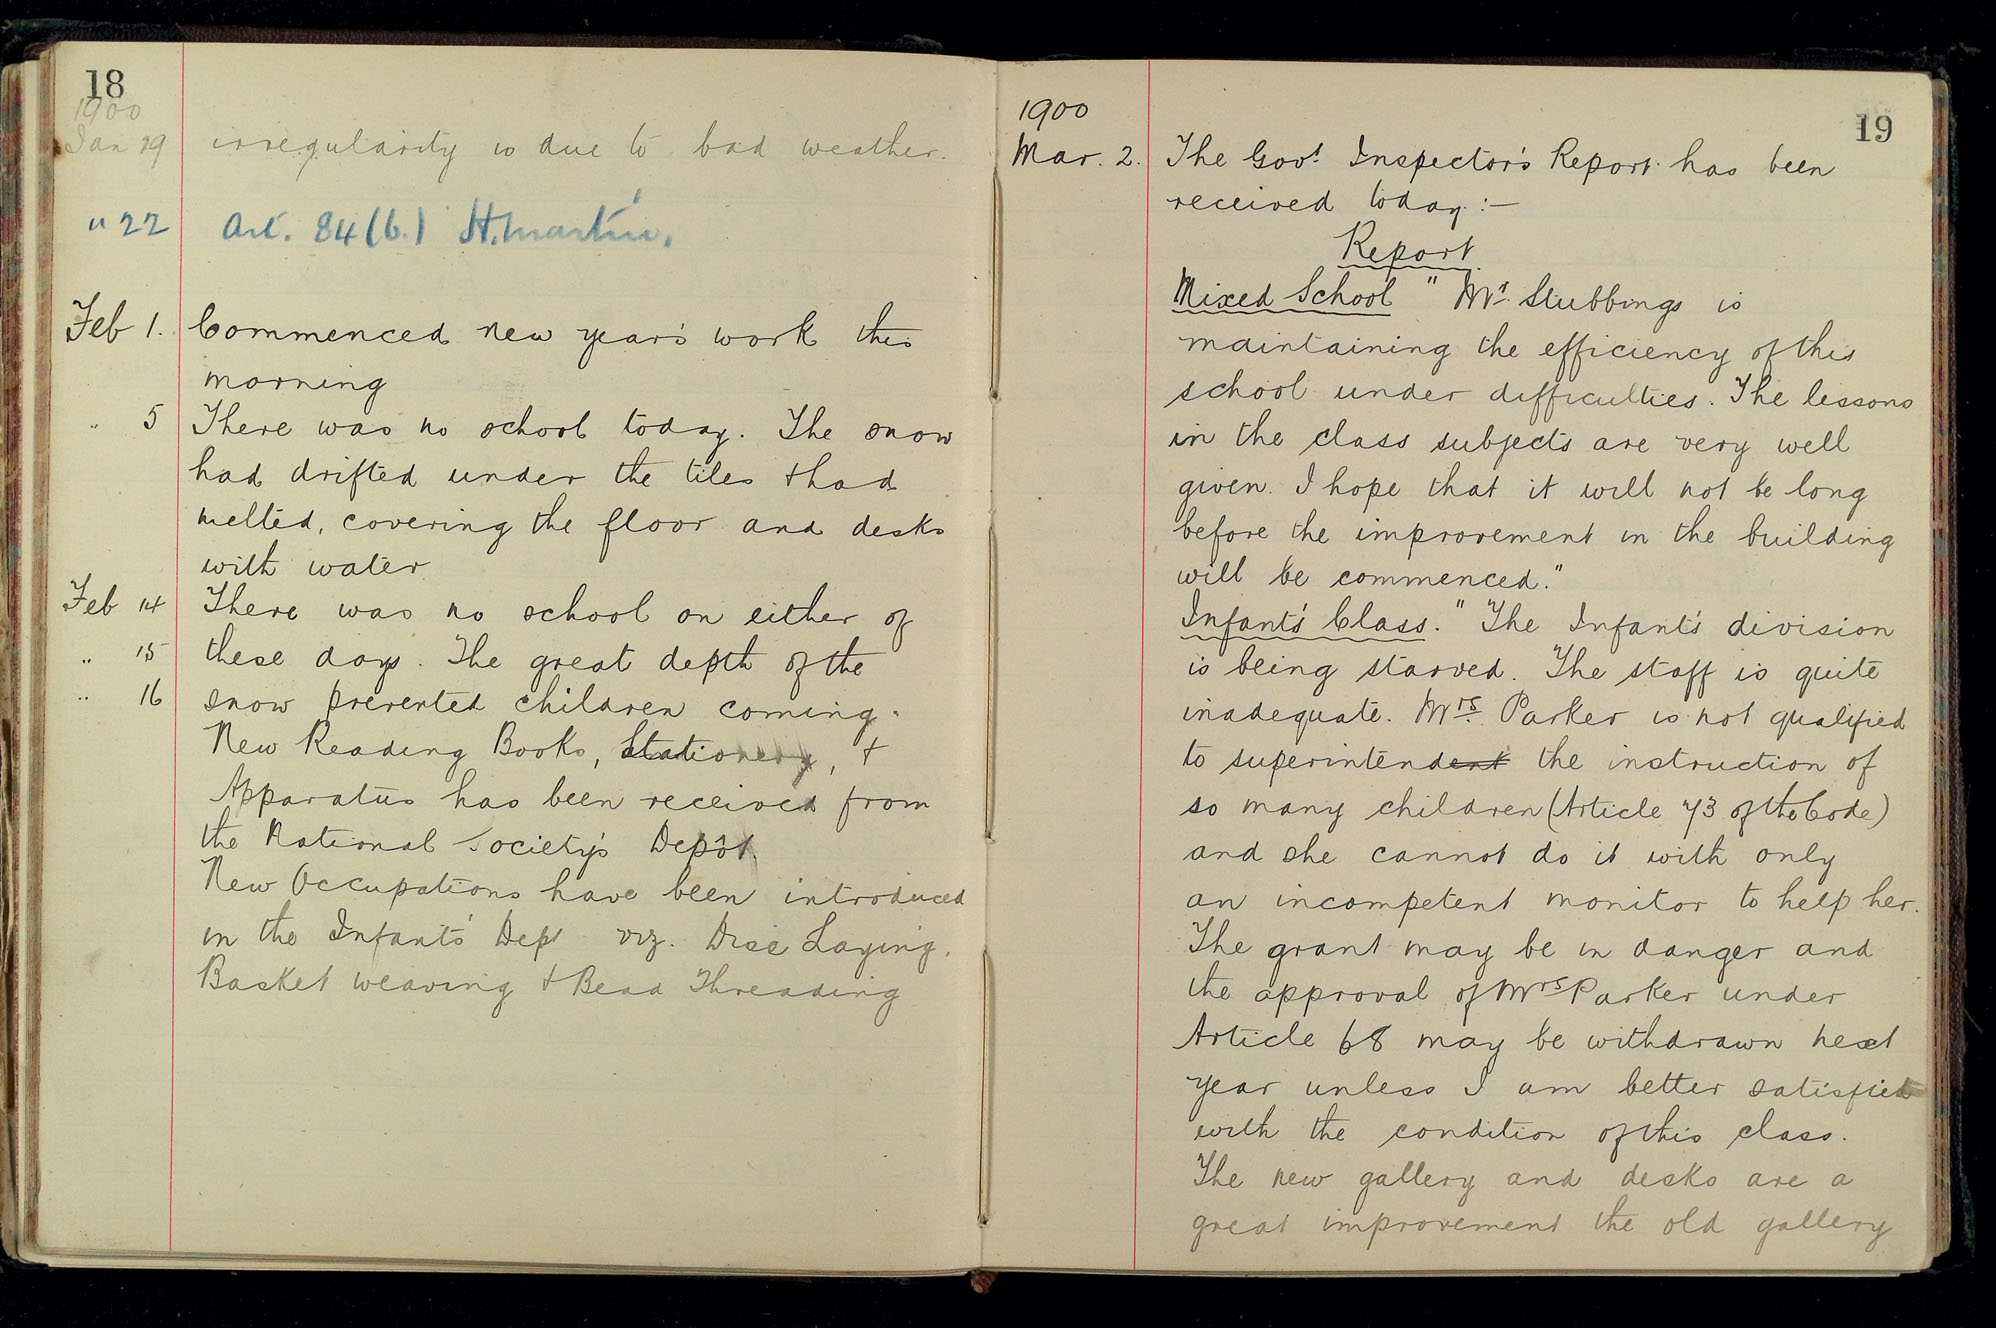 18
1900
Jan 19 irregularity is due to bad weather.
" 22 Art. 84(b.) H. Martin.
Feb 1. Commenced new year's work this
morning
" 5 There was no school today. The snow
had drifted under the tiles & had
melted, covering the floor and desks
with water
Feb 14 There was no school on either of
" 15 these days. The great depth of the
" 16 snow prevented children coming.
New Reading Books, Stationery, &
Apparatus has been received from
the National Society's Depôt.
New Occupations have been introduced
in the Infants' Dept viz. Disc Laying,
Basket weaving & Bead Threading
19
1900
Mar. 2. The Govt. Inspector's Report has been
received today :—
Report
Mixed School " Mr. Stubbings is
maintaining the efficiency of this
school under difficulties. The lessons
in the class subjects are very well
given. I hope that it will not be long
before the improvement in the building
will be commenced."
Infants' Class. " The Infants' division
is being starved. The staff is quite
inadequate. Mrs. Parker is not qualified
to superintendent the instruction of
so many children (Article 73 of the Code)
and she cannot do it with only
an incompetent monitor to help her.
The grant may be in danger and
the approval of Mrs Parker under
Article 68 may be withdrawn next
year unless I am better satisfied
with the condition of this class.
The new gallery and desks are a
great improvement the old gallery